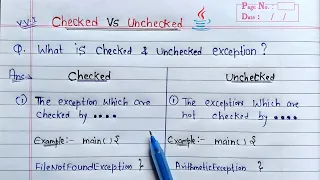 V.V.I
Checked Vs Unchecked
Page No.:
Date: / /
Q. What is Checked & Unchecked exception?
Ans→ Checked Unchecked
① The exception which are ① The exception which are
checked by •••• not checked by ••••
Example:- main() { Example:- main() {
FileNotFoundException } ArithmeticException }